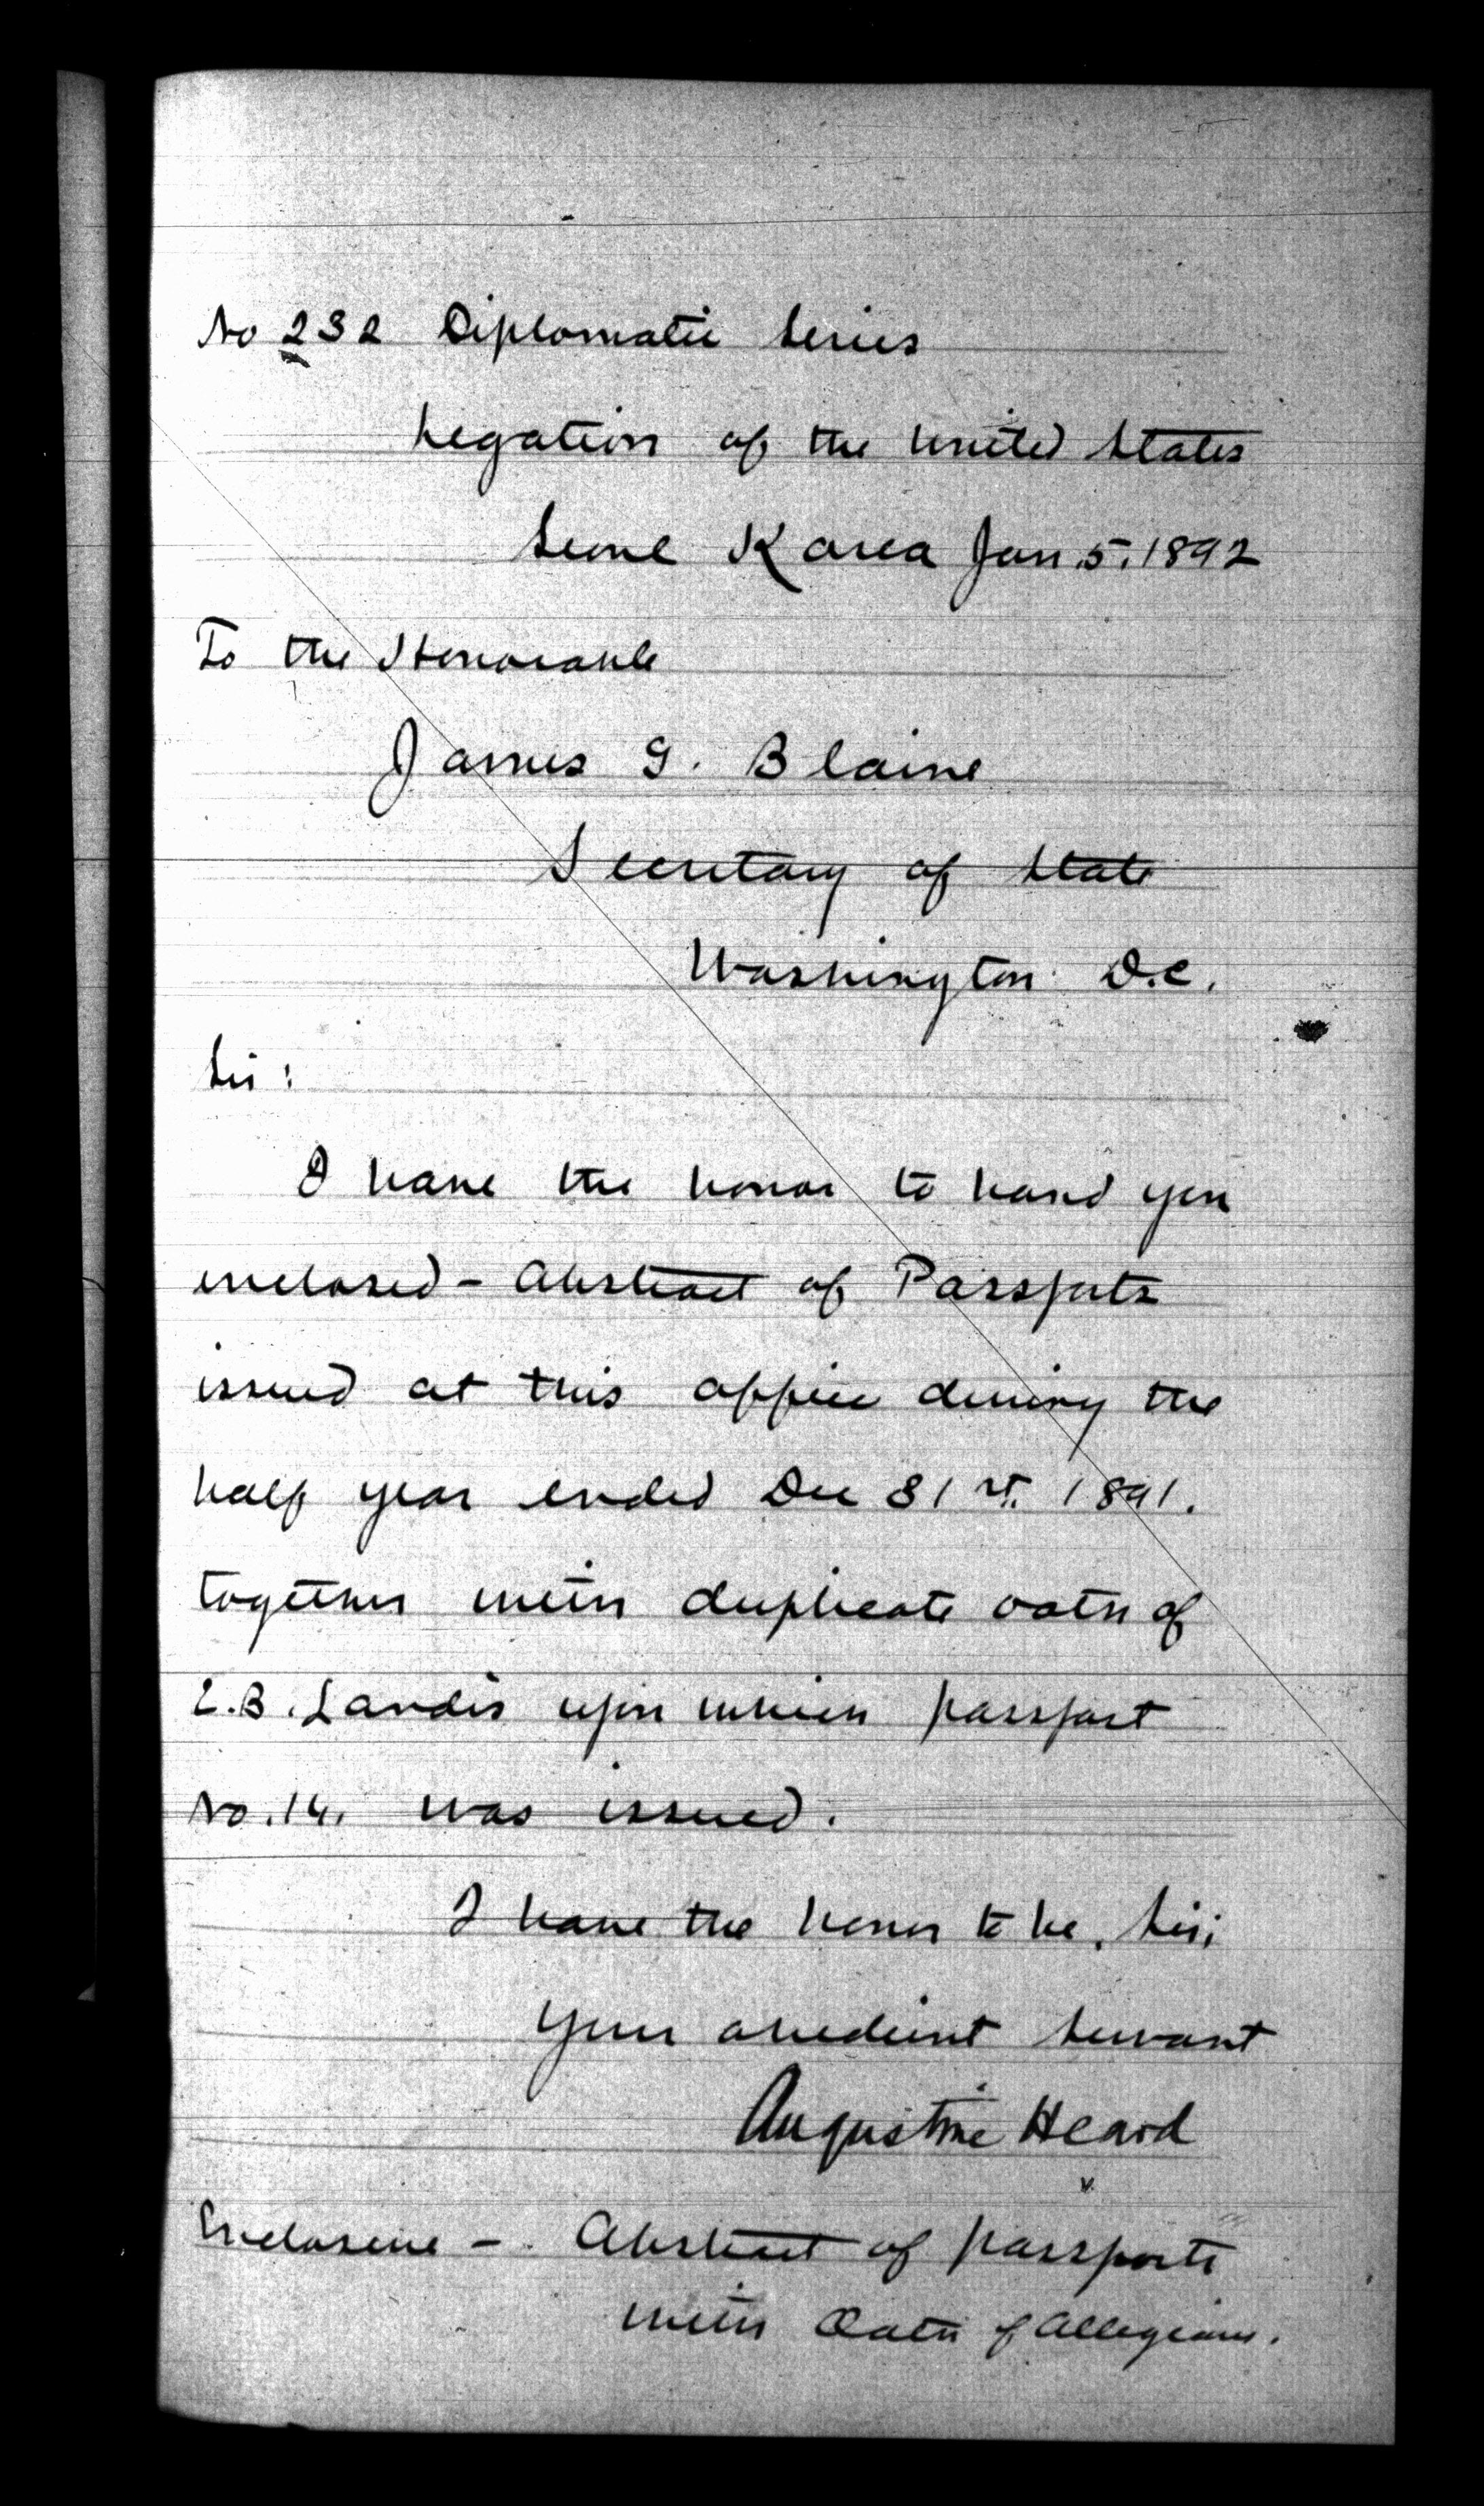 No 232 Diplomatic Series
Legation of the United States
Seoul Korea Jan. 5. 1892
To the Honorable
James G. Blaine
Secretary of State
Washington D.C.
Sir:
I have the honor to hand you
enclosed - Abstract of Passports
issued at this office during the
half year ended Dec 31st. 1891.
together with duplicate oath of
E.B. Landis upon which passport
No. 14. was issued.
I have the honor to be, Sir;
Your obedient Servant
Augustine Heard
Enclosure - Abstract of passports
with Oath of Allegiance.